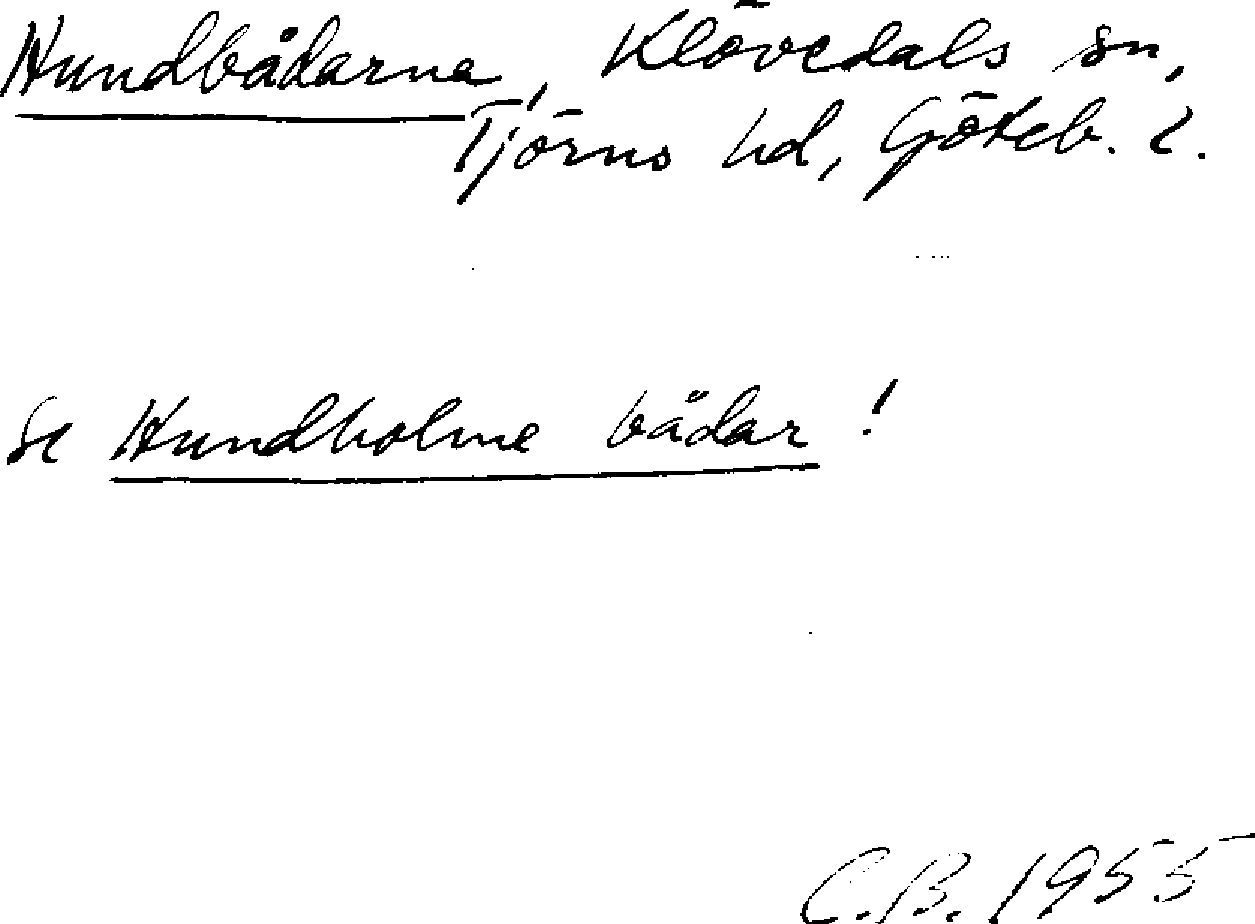 Hundbådarna, Klövedals sn,
Tjörns hd, Göteb. l.
Se Hundholme bådar!
C.B. 1955